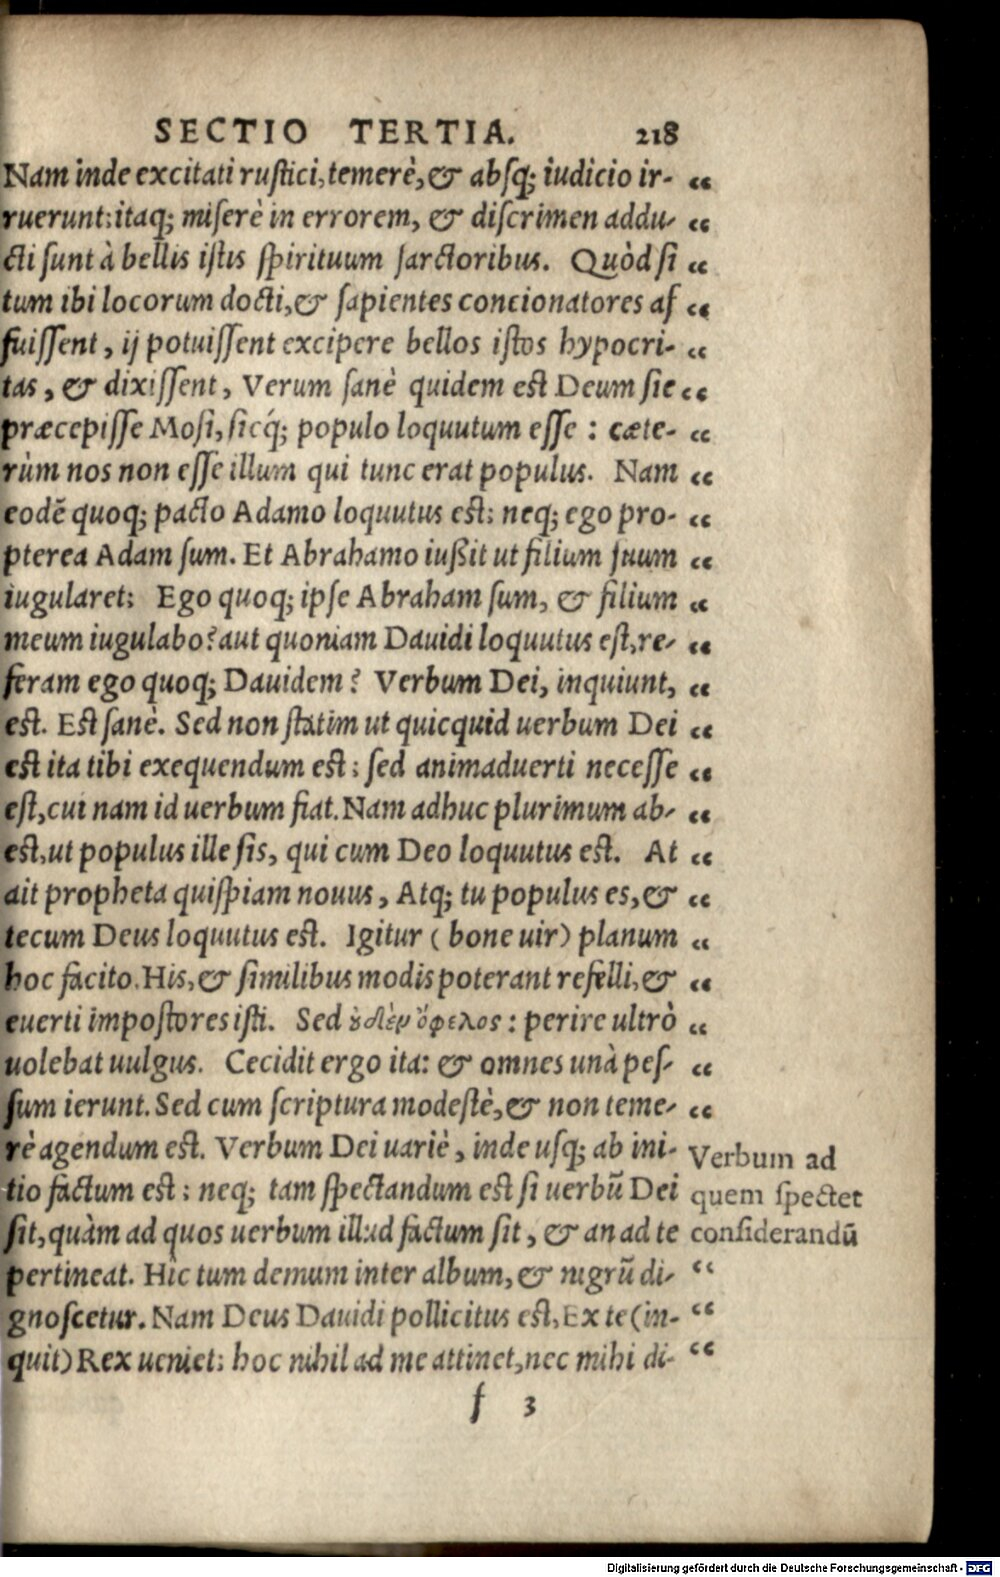 SECTIO TERTIA. 218
Nam inde excitati rustici, temerè, & absq; iudicio ir- “
ruerunt: itaq; miserè in errorem, & discrimen addu- “
cti sunt à bellis istis spirituum sarctoribus. Quòd si “
tum ibi locorum docti, & sapientes concionatores af “
fuissent, ij potuissent excipere bellos istos hypocri- “
tas, & dixissent, Verum sanè quidem est Deum sic “
præcepisse Mosi, sicq́; populo loquutum esse : cæte- “
rùm nos non esse illum qui tunc erat populus. Nam “
eodē quoq; pacto Adamo loquutus est: neq; ego pro- “
pterea Adam sum. Et Abrahamo iußit ut filium suum “
iugularet: Ego quoq; ipse Abraham sum, & filium “
meum iugulabo? aut quoniam Dauidi loquutus est, re- “
feram ego quoq; Dauidem? Verbum Dei, inquiunt, “
est. Est sanè. Sed non statim ut quicquid uerbum Dei “
est ita tibi exequendum est: sed animaduerti necesse “
est, cui nam id uerbum fiat. Nam adhuc plurimum ab- “
est, ut populus ille sis, qui cum Deo loquutus est. At “
ait propheta quispiam nouus, Atq; tu populus es, & “
tecum Deus loquutus est. Igitur ( bone uir) planum “
hoc facito. His, & similibus modis poterant refelli, & “
euerti impostores isti. Sed οὐδὲν ὄφελος: perire ultrò “
uolebat uulgus. Cecidit ergo ita: & omnes unà pes- “
sum ierunt. Sed cum scriptura modestè, & non teme- “
rè agendum est. Verbum Dei uariè, inde usq; ab ini-
tio factum est: neq; tam spectandum est si uerbū Dei
sit, quàm ad quos uerbum illud factum sit, & an ad te
pertineat. Hic tum demum inter album, & nigrū di- “
gnoscetur. Nam Deus Dauidi pollicitus est, Ex te (in- “
quit) Rex ueniet: hoc nihil ad me attinet, nec mihi di- “
Verbum ad
quem spectet
considerandū
f 3
Digitalisierung gefördert durch die Deutsche Forschungsgemeinschaft - DFG